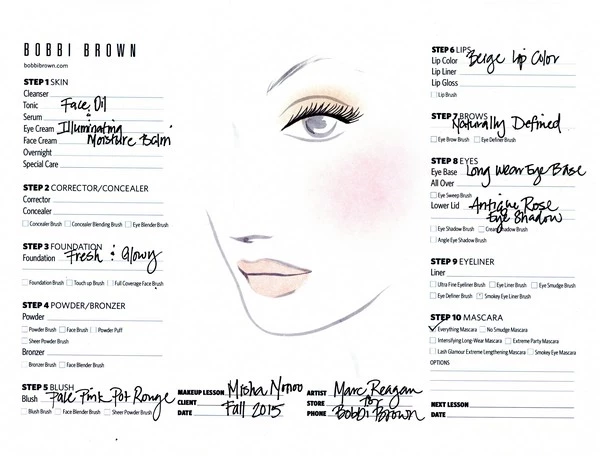 BOBBI BROWN
bobbibrown.com
STEP 1 SKIN
Cleanser
Tonic Face Oil
Serum &
Eye Cream Illuminating
Face Cream Moisture Balm
Overnight
Special Care
STEP 2 CORRECTOR/CONCEALER
Corrector
Concealer
Concealer Brush Concealer Blending Brush Eye Blender Brush
STEP 3 FOUNDATION
Foundation Fresh & Glowy
Foundation Brush Touch up Brush Full Coverage Face Brush
STEP 4 POWDER/BRONZER
Powder
Powder Brush Face Brush Powder Puff
Sheer Powder Brush
Bronzer
Bronzer Brush Face Blender Brush
STEP 5 BLUSH
Blush Pale Pink Pot Rouge
Blush Brush Face Blender Brush Sheer Powder Brush
MAKEUP LESSON Misha Nonoo
CLIENT Fall 2015
DATE
ARTIST Marc Reagan
STORE for
PHONE Bobbi Brown
STEP 6 LIPS
Lip Color Beige Lip Color
Lip Liner
Lip Gloss
Lip Brush
STEP 7 BROWS
Naturally Defined
Eye Brow Brush Eye Definer Brush
STEP 8 EYES
Eye Base Long Wear Eye Base
All Over
Eye Sweep Brush
Lower Lid Antique Rose
Eye Shadow
Eye Shadow Brush Cream Shadow Brush
Angle Eye Shadow Brush
STEP 9 EYELINER
Liner
Ultra Fine Eyeliner Brush Eye Liner Brush Eye Smudge Brush
Eye Definer Brush Smokey Eye Liner Brush
STEP 10 MASCARA
Everything Mascara No Smudge Mascara
Intensifying Long-Wear Mascara Extreme Party Mascara
Lash Glamour Extreme Lengthening Mascara Smokey Eye Mascara
OPTIONS
NEXT LESSON
DATE